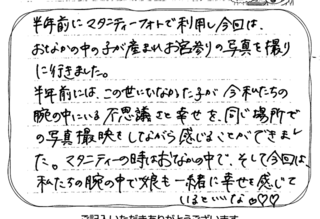 半年前にマタニティーフォトで利用し今回は、
おなかの中の子が産まれお宮参りの写真を撮り
に行きました。
半年前には、この世にいなかった子が今私たちの
腕の中にいる不思議さと幸せを、同じ場所で
の写真撮映をしながら感じることができまし
た。マタニティーの時はおなかの中で、そして今回は、
私たちの腕の中で娘も一緒に幸せを感じて
いるといいな♡♡
ご記入いただきありがとうございます